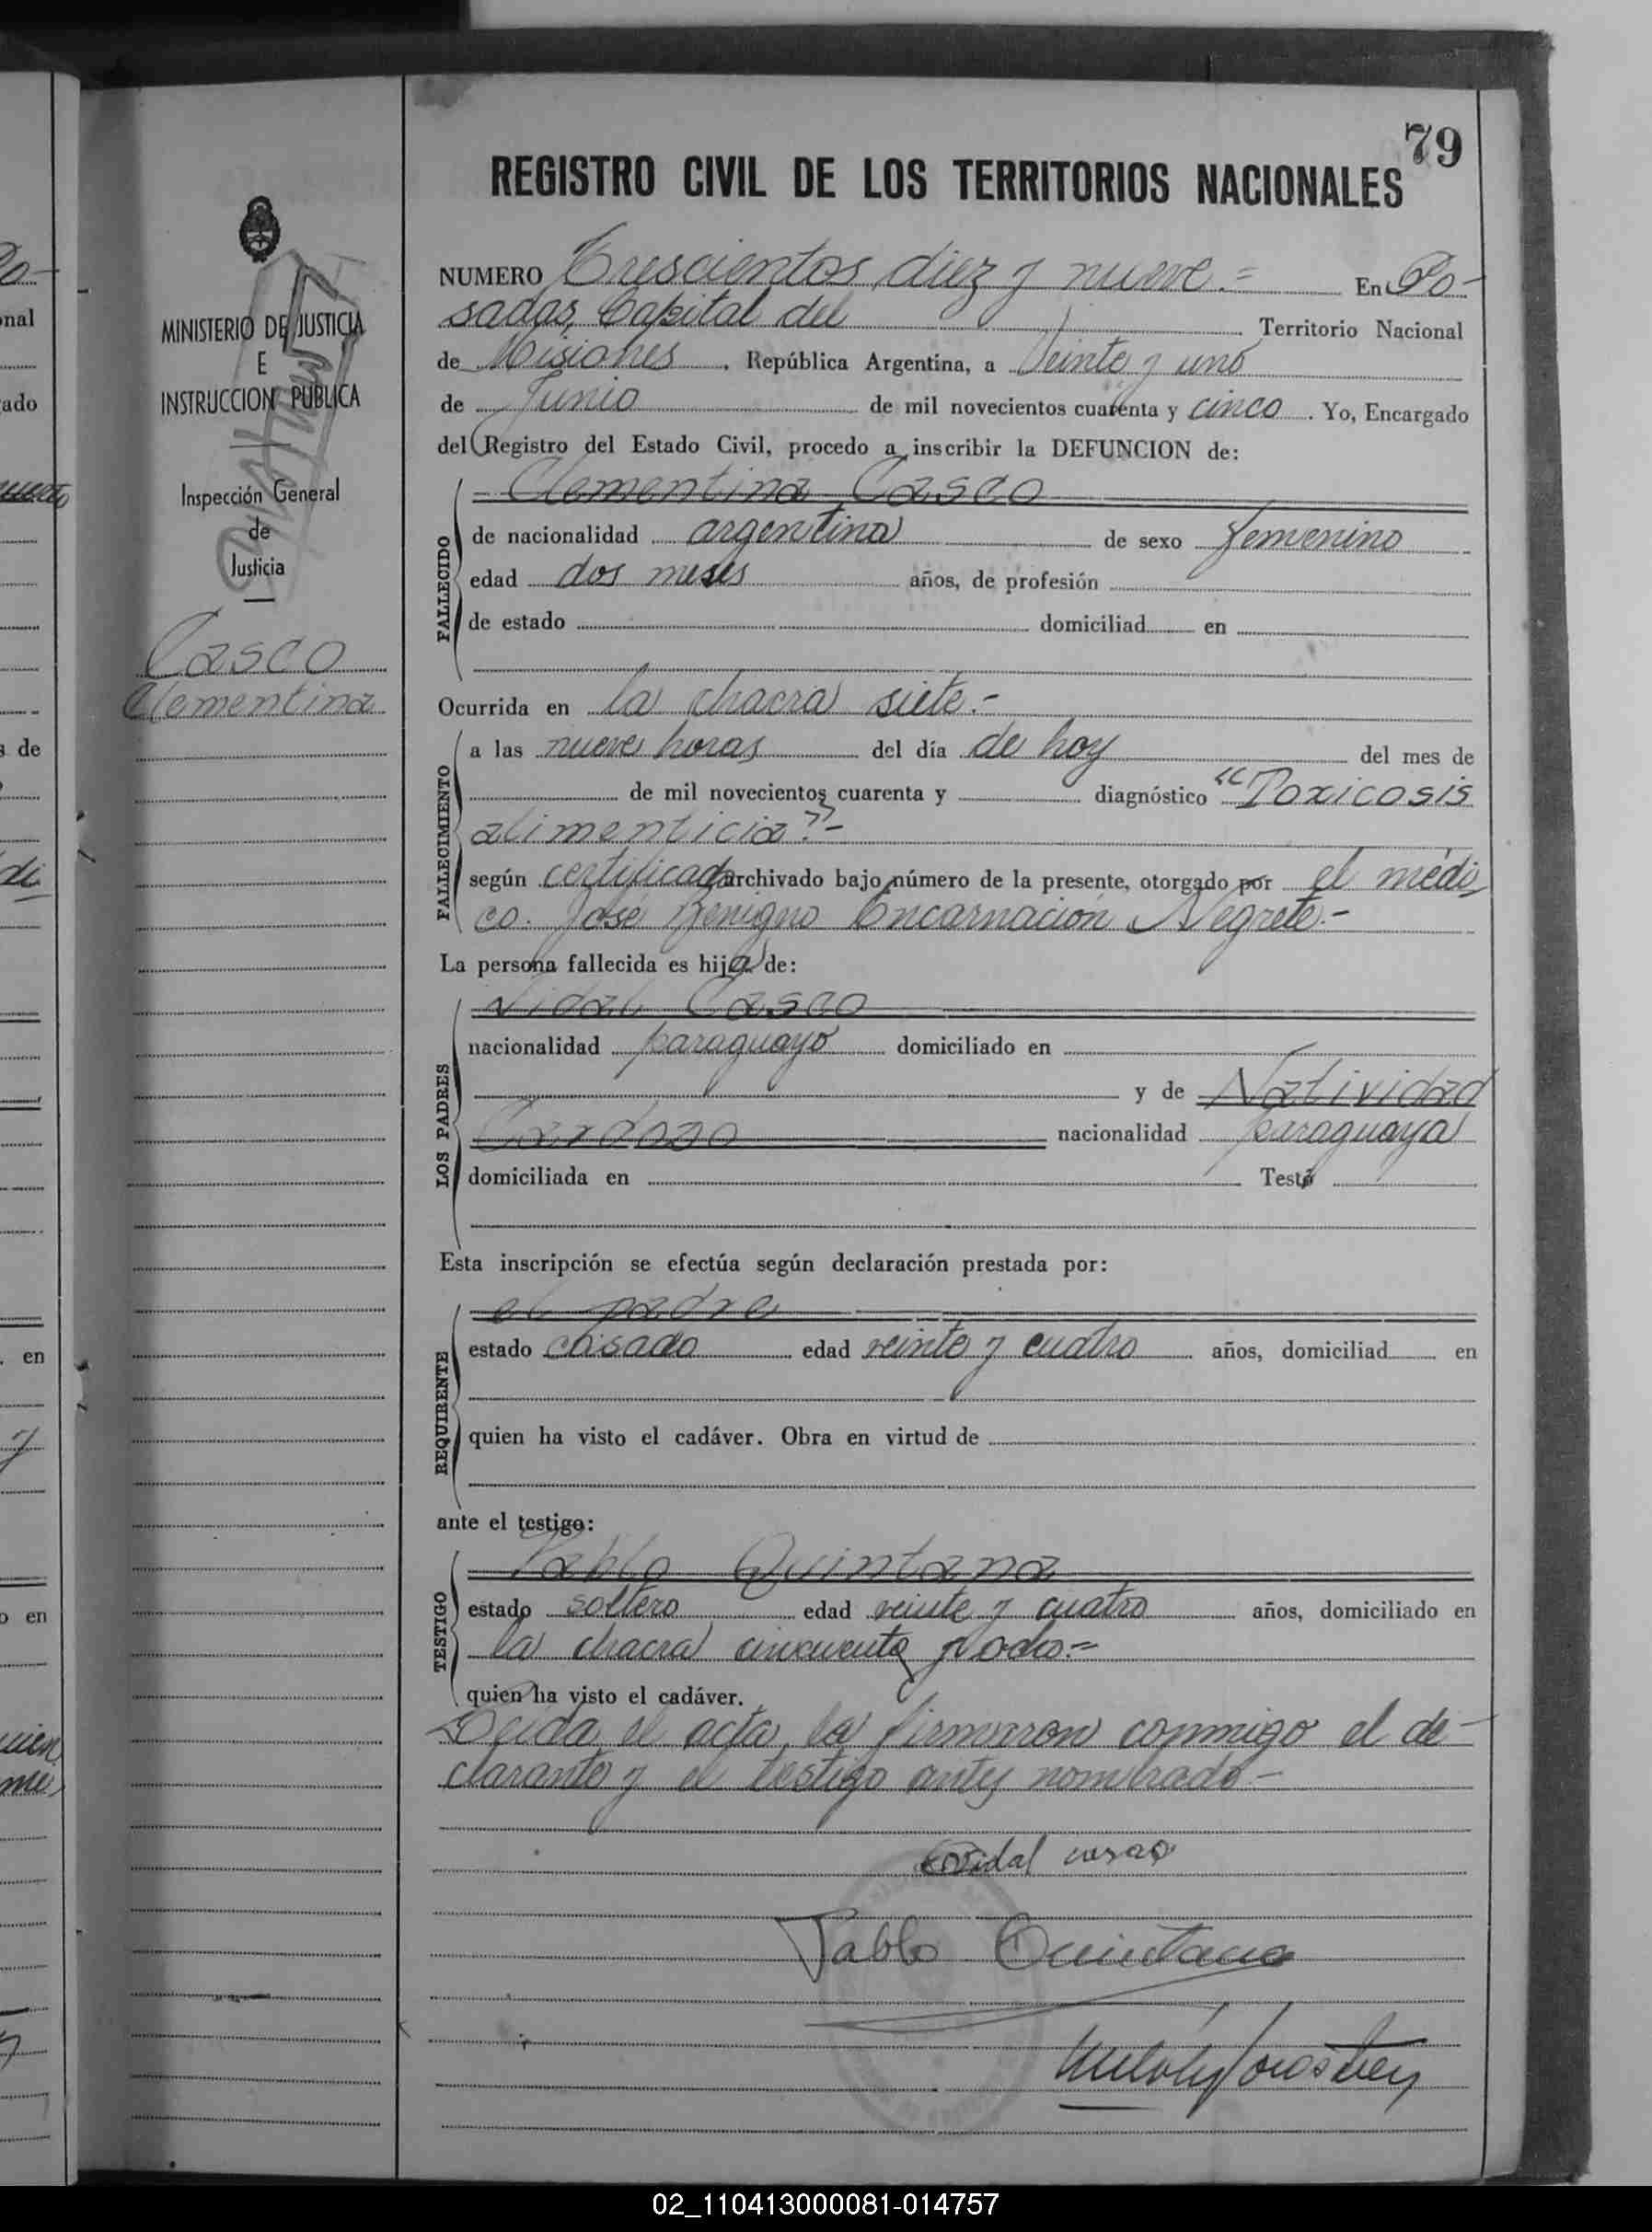 79
REGISTRO CIVIL DE LOS TERRITORIOS NACIONALES
MINISTERIO DE JUSTICIA
E
INSTRUCCION PUBLICA
Inspección General
de
Justicia
Casco
Clementina
NUMERO Trescientos diez y nueve.= En Po-
sadas, Capital del Territorio Nacional
de Misiones, República Argentina, a Veinte y uno
de Junio de mil novecientos cuarenta y cinco. Yo, Encargado
del Registro del Estado Civil, procedo a inscribir la DEFUNCION de:
Clementina Casco
FALLECIDO
de nacionalidad argentina de sexo femenino
edad dos meses años, de profesión
de estado domiciliad en
Ocurrida en la chacra siete.-
FALLECIMIENTO
a las nueve horas del día de hoy del mes de
de mil novecientos cuarenta y diagnóstico "Toxicosis
alimenticia".-
según certificado archivado bajo número de la presente, otorgado por el médi
co. José Benigno Encarnación Negrete.-
La persona fallecida es hija de:
LOS PADRES
Vidal Casco
nacionalidad paraguayo domiciliado en
y de Natividad
Cardozo nacionalidad paraguaya
domiciliada en Testó
Esta inscripción se efectúa según declaración prestada por:
REQUIRENTE
el padre
estado casado edad veinte y cuatro años, domiciliad en
quien ha visto el cadáver. Obra en virtud de
ante el testigo:
TESTIGO
Pablo Quintana
estado soltero edad veinte y cuatro años, domiciliado en
la chacra cincuenta y ocho.=
quien ha visto el cadáver.
Leida el acta, la firmaron conmigo el de-
clarante y el testigo antes nombrado-
Vidal casco
Pablo Quintana
02_110413000081-014757